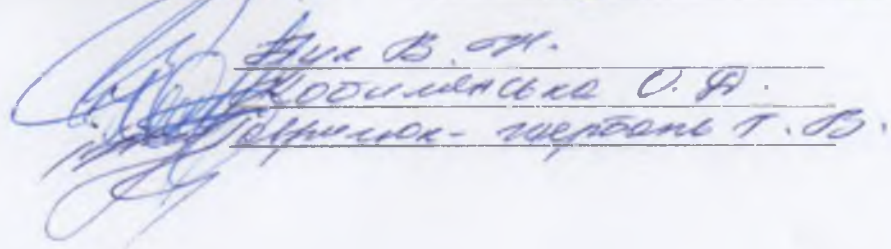 Кук В. М.
Кобилянська О. Я.
Гаврилюк-Щербань Т. В.